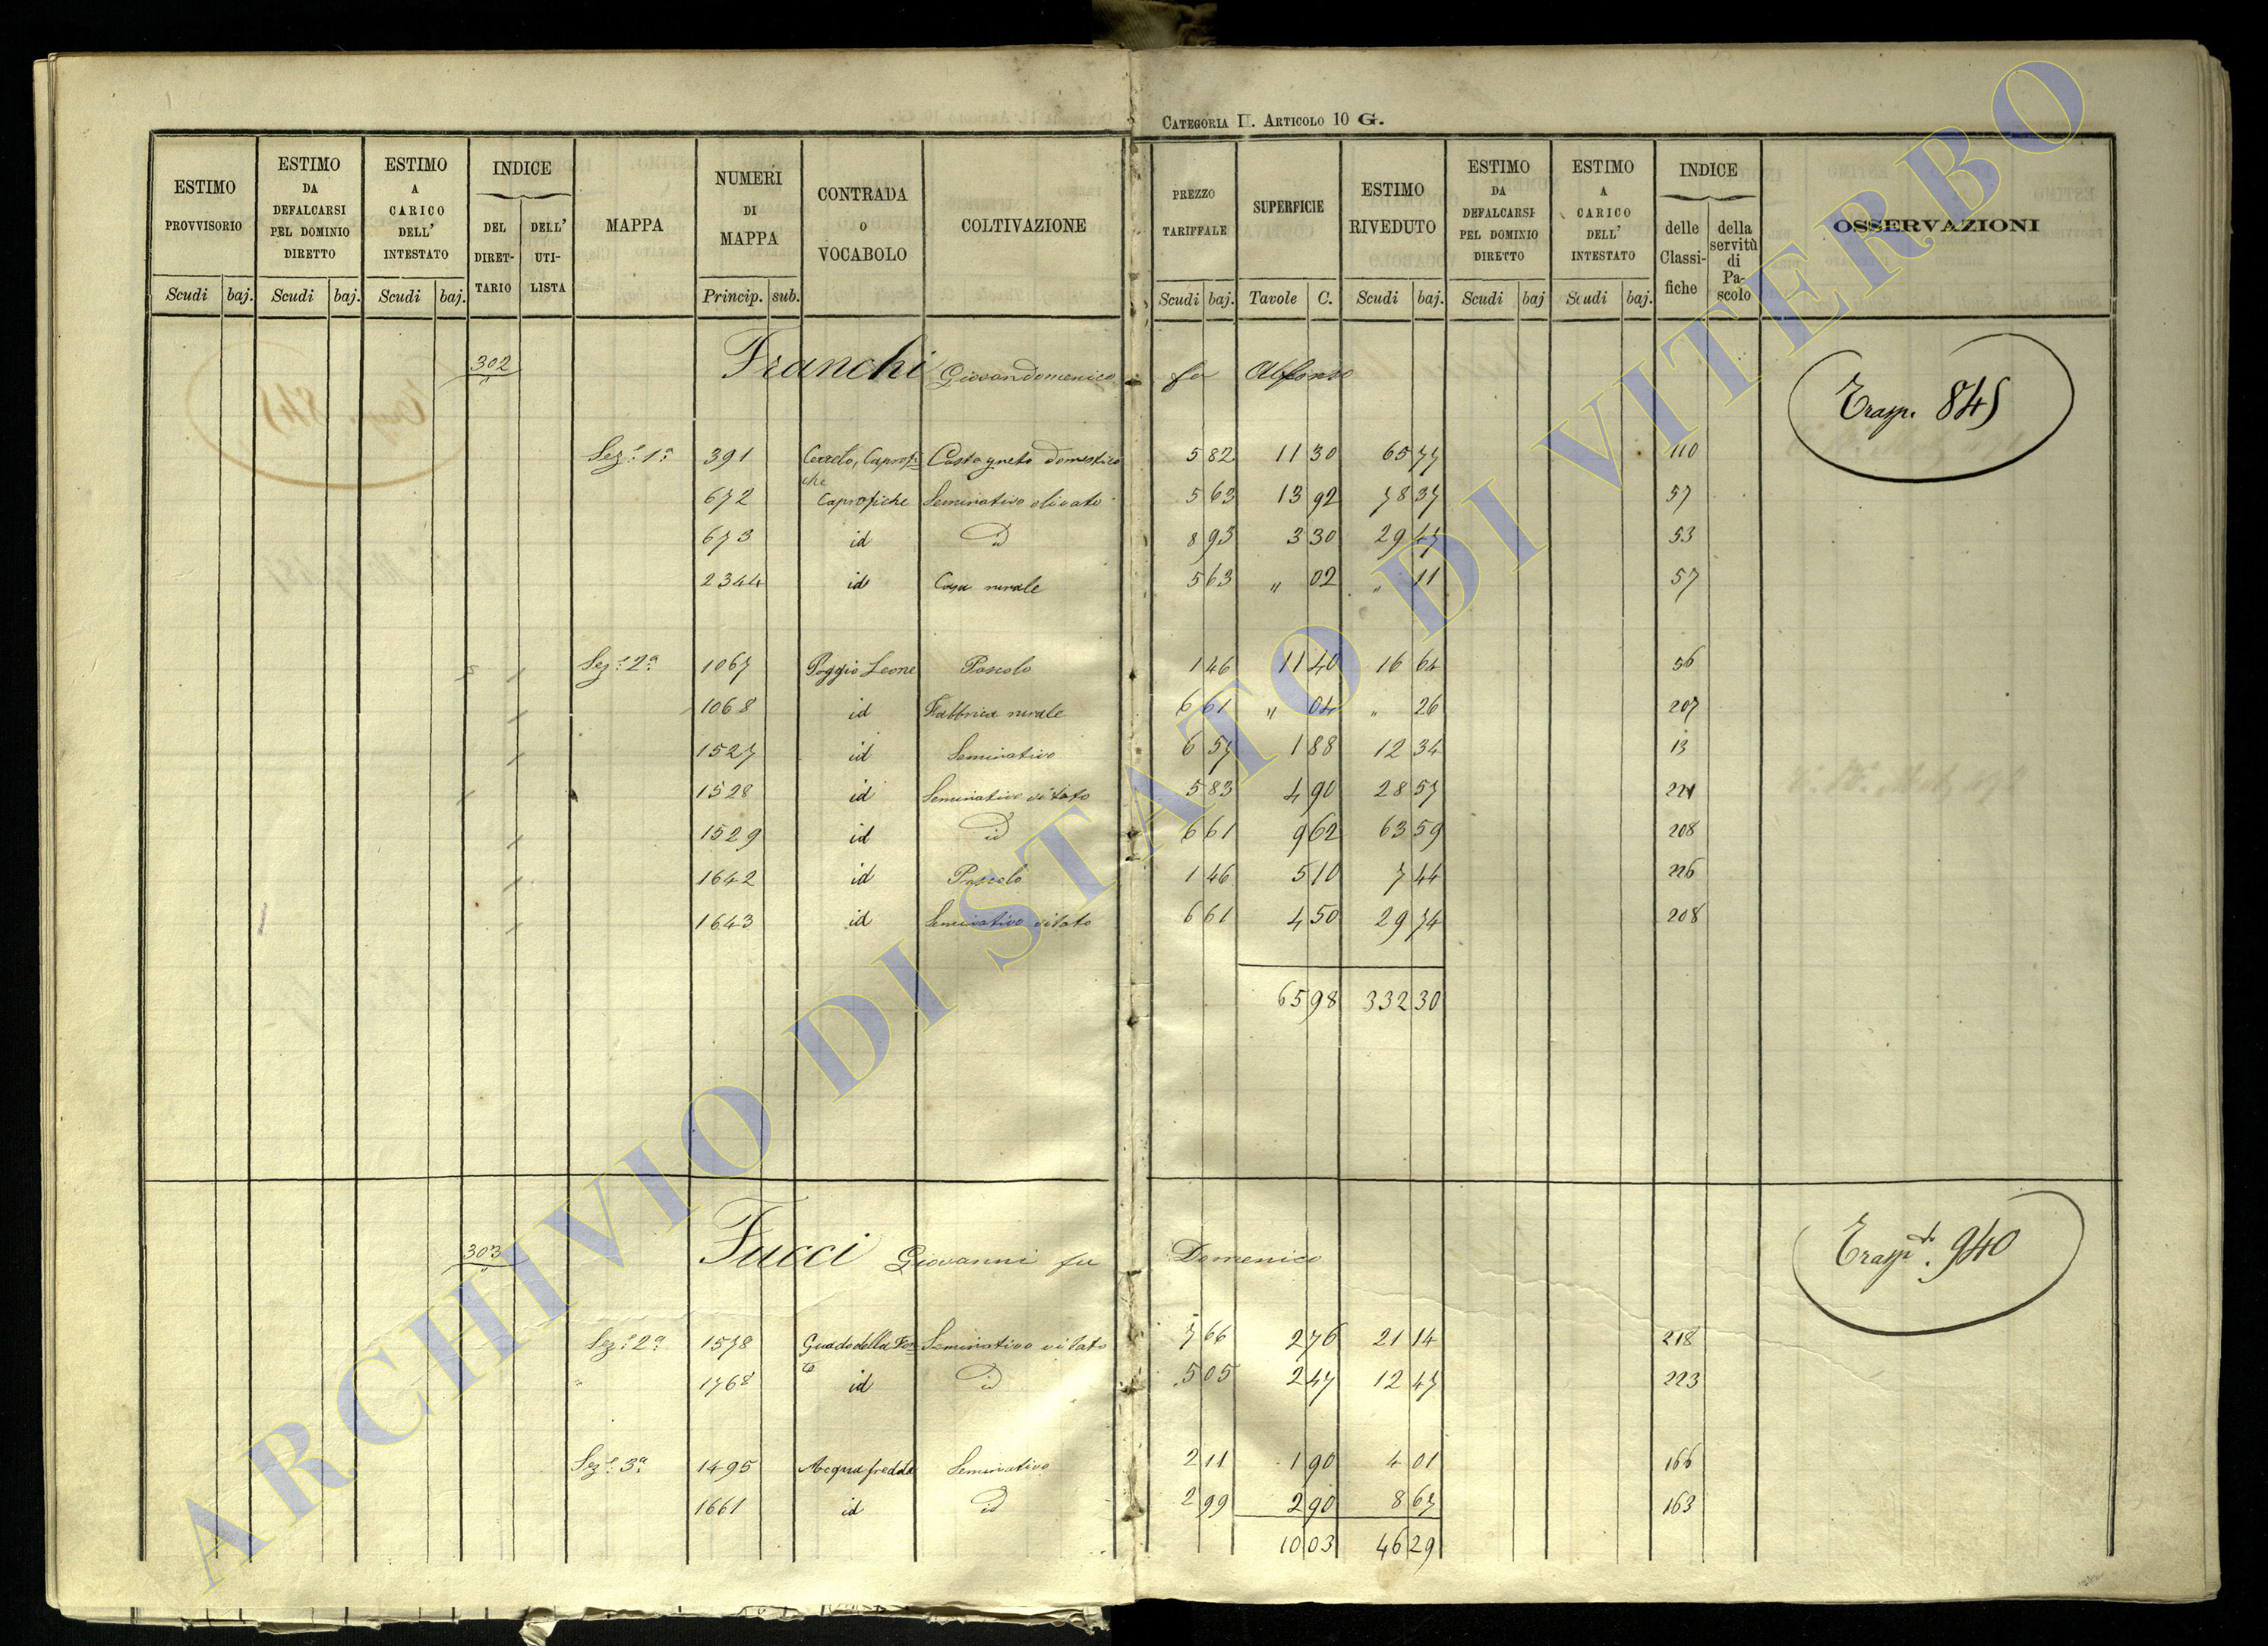 CATEGORIA II. ARTICOLO 10 G.
ESTIMO PROVVISORIO
ESTIMO DA DEFALCARSI PEL DOMINIO DIRETTO
ESTIMO A CARICO DELL' INTESTATO
INDICE
DEL DIRET-TARIO
DELL' UTI-LISTA
MAPPA
NUMERI DI MAPPA
CONTRADA O VOCABOLO
COLTIVAZIONE
PREZZO TARIFFALE
SUPERFICIE
ESTIMO RIVEDUTO
ESTIMO DA DEFALCARSI PEL DOMINIO DIRETTO
ESTIMO A CARICO DELL' INTESTATO
INDICE
delle Classi-fiche
della servitù di Pa-scolo
OSSERVAZIONI
Scudi baj. Scudi baj. Scudi baj. Princip. sub. Scudi baj. Tavole C. Scudi baj. Scudi baj Scudi baj.
302 Franchi Giovandomenico fu Alfonso Trasp. 845
Sez.e 1a 391 Cerreto, Caprofiche Castagneto domestico 5 82 11 30 65 77 110
672 Caprofiche Seminativo olivato 5 63 13 92 78 37 57
673 id id 8 93 3 30 29 47 53
2344 id Casa rurale 5 63 " 02 " 11 57
Sez.e 2a 1067 Poggio Leone Pascolo 1 46 11 40 16 64 56
1068 id Fabbrica rurale 6 61 " 04 " 26 207
1527 id Seminativo 6 57 1 88 12 34 13
1528 id Seminativo vitato 5 83 4 90 28 57 221
1529 id id 6 61 9 62 63 59 208
1642 id Pascolo 1 46 5 10 7 44 226
1643 id Seminativo vitato 6 61 4 50 29 74 208
65 98 332 30
303 Fucci Giovanni fu Domenico Trasp.to 940
Sez.e 2a 1578 Guado della Fonte Seminativo vitato 7 66 2 76 21 14 218
" 1768 id id 5 05 2 47 12 47 223
Sez.e 3a 1495 Acqua fredda Seminativo 2 11 1 90 4 01 166
1661 id id 2 99 2 90 8 67 163
10 03 46 29
ARCHIVIO DI STATO DI VITERBO